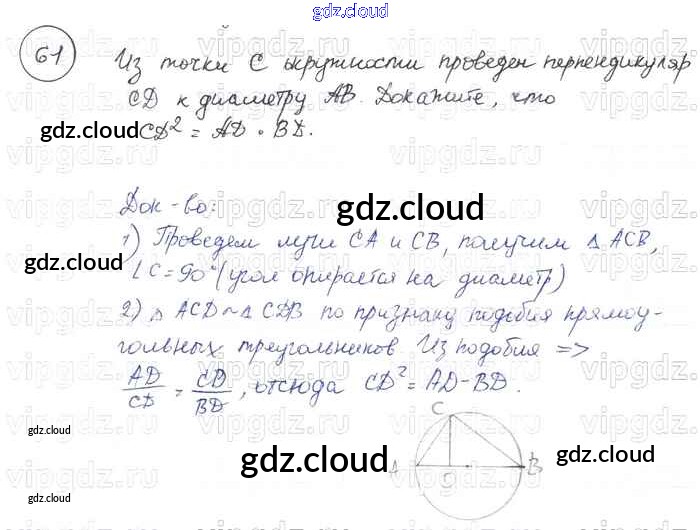 gdz.cloud
61
Из точки С окружности проведен перпендикуляр
CD к диаметру AB. Докажите, что
gdz.cloud CD² = AD · BD.
Док-во: gdz.cloud
1) Проведем лучи CA и CB, получим △ ACB,
gdz.cloud ∠C = 90° (угол опирается на диаметр)
2) △ ACD ~ △ CDB по признаку подобия прямоу-
гольных треугольников. Из подобия =>
AD/CD = CD/BD, отсюда CD² = AD - BD.
C
gdz.cloud
gdz.cloud A B gdz.cloud
gdz.cloud
vipgdz.ru vipgdz.ru vipgdz.ru